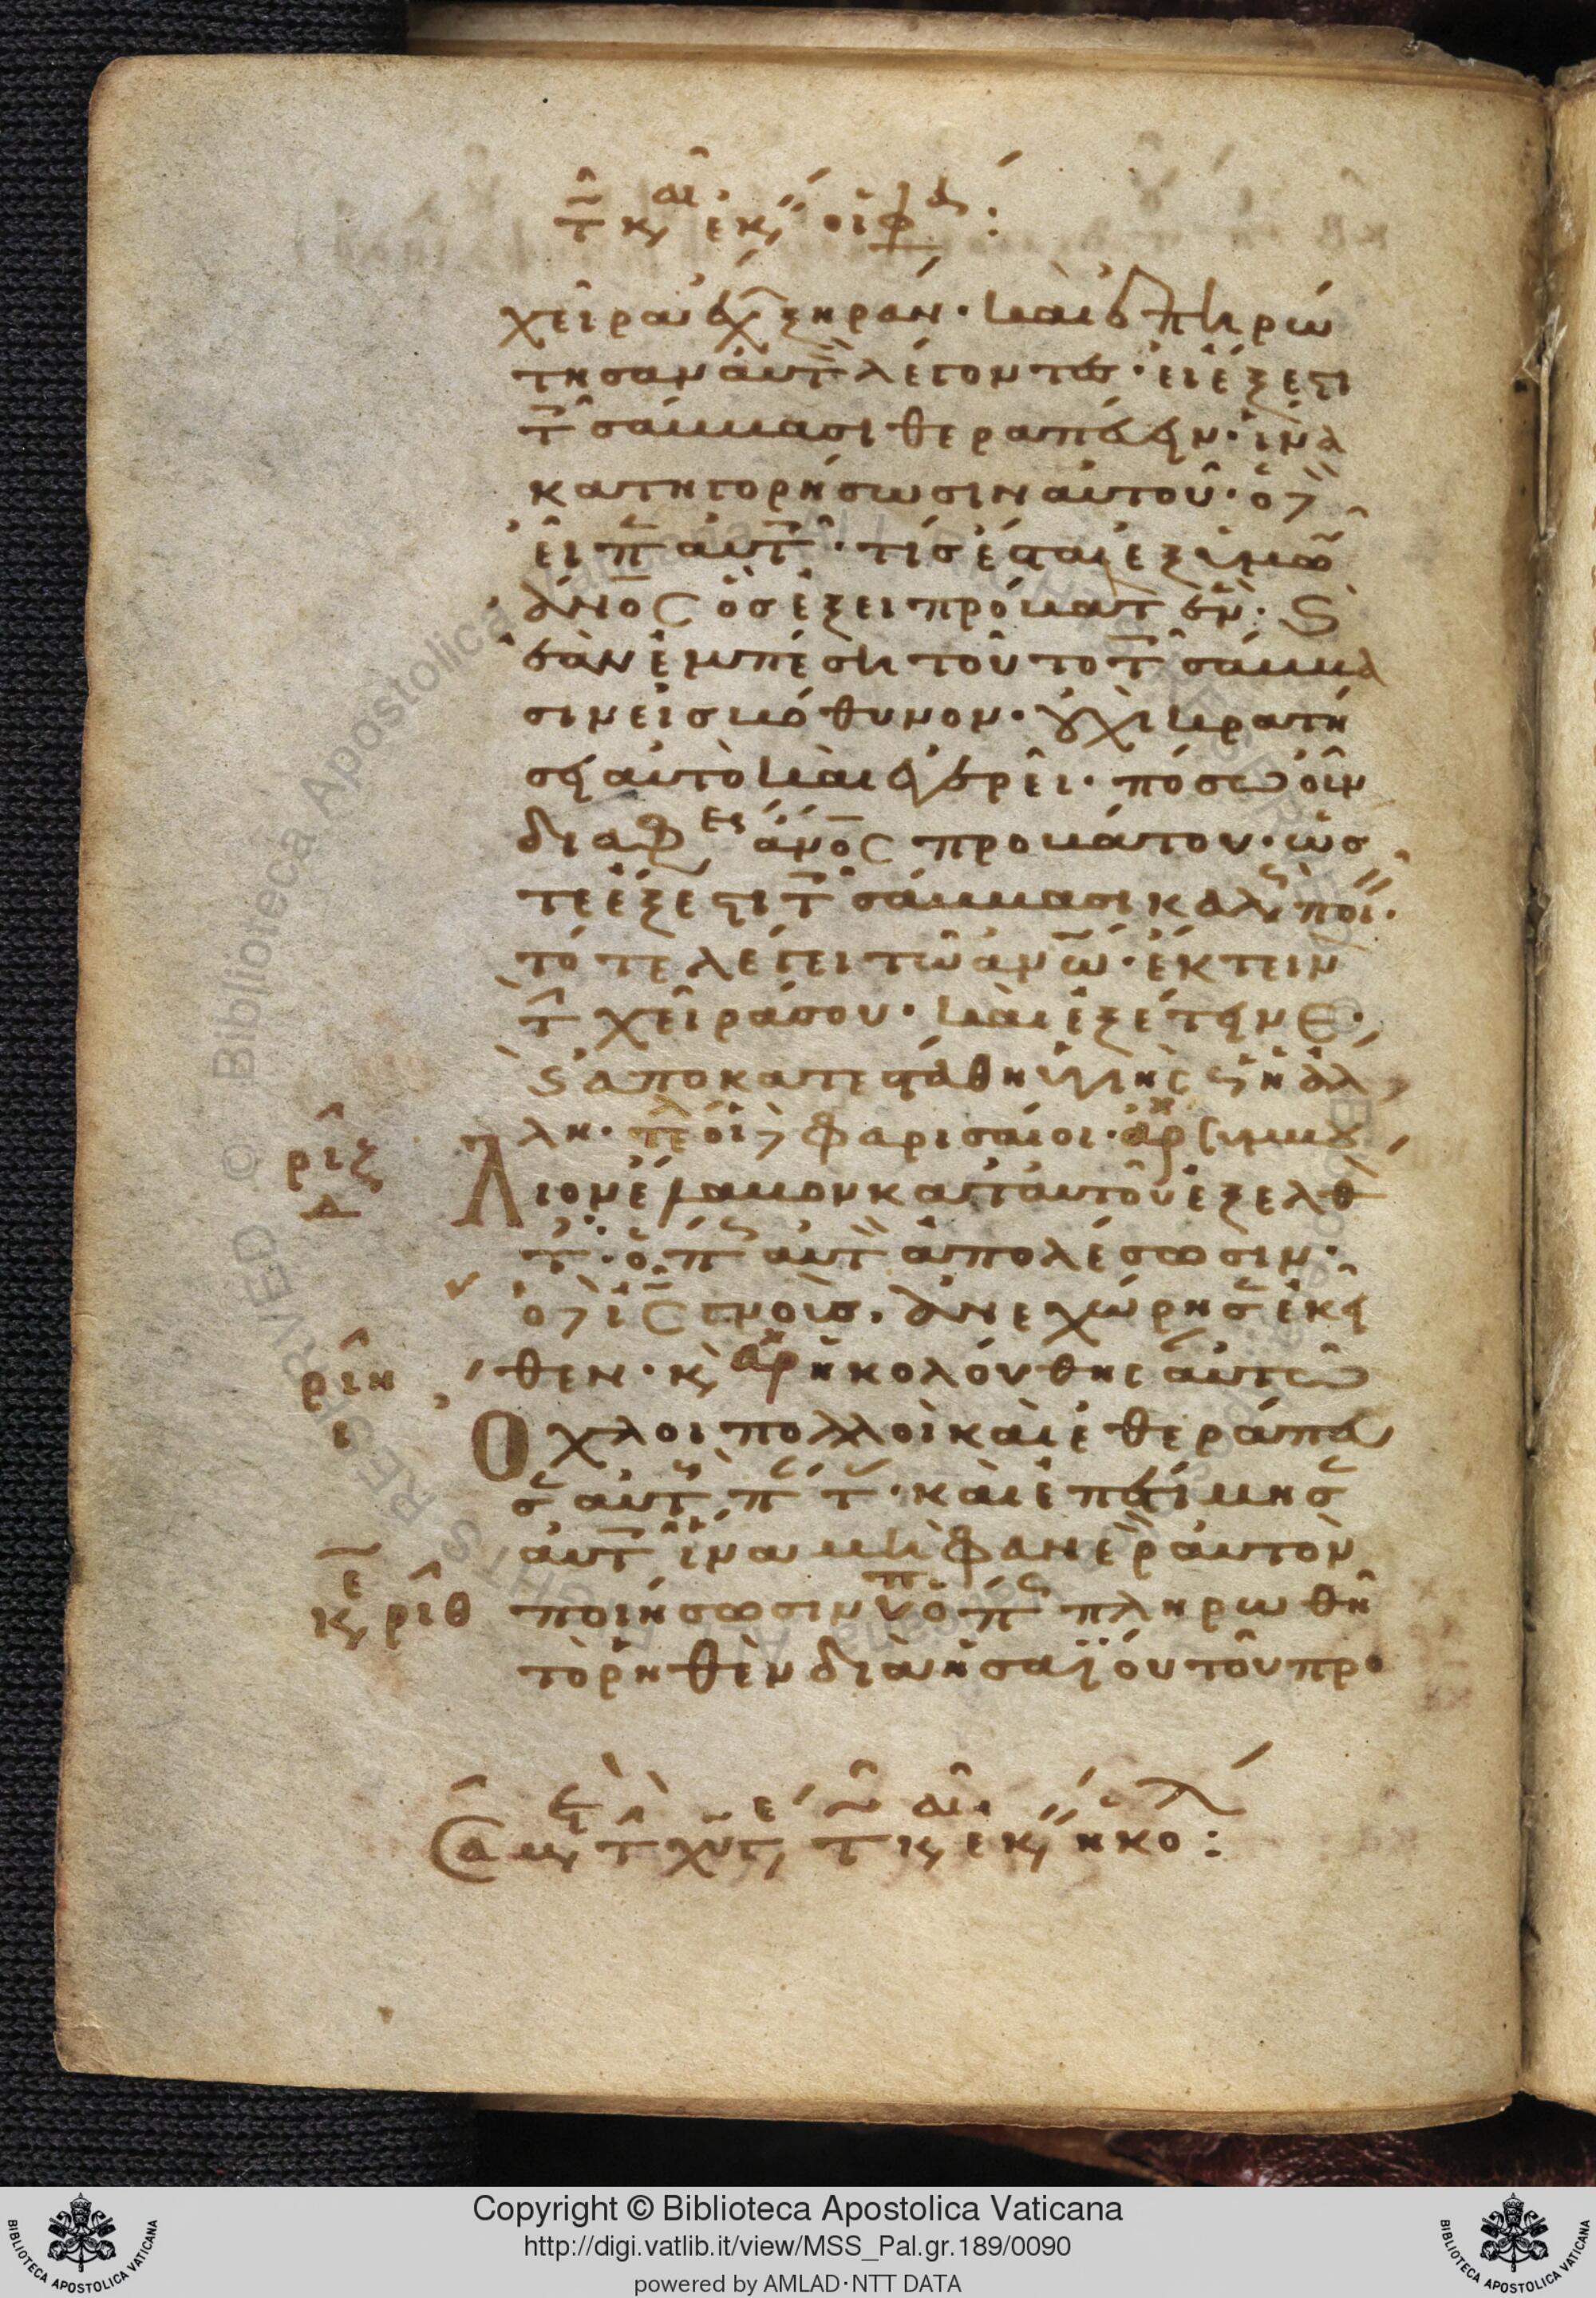 χεῖρα ἔχ ξηράν· καὶ ἐπηρώ
τησαν αὐτ λέγοντες· εἰ ἔξεστι
τ σάββασι θεραπεύειν· ἵνα
κατηγορήσωσιν αὐτοῦ· ὁ δὲ
εἶπ αὐτ· τίς ἔσται ἐξ ὑμῶ
ἄνος ὃς ἕξει πρόβατ ἕν· ϗ
ἐὰν ἐμπέση τοῦτο τ σάββα
σιν εἰς βόθυνον· οὐχὶ κρατή
σει αὐτὸ καὶ ἐγερεῖ· πόσω οὖν
διαφερει ἄνος προβάτου· ὥσ
τε ἔξεστι τ σάββασι καλῶς ποι·
τότε λέγει τῶ ἀνω· ἔκτειν
τ χεῖρά σου· καὶ ἐξέτεινε·
ϗ ἀποκατεστάθη ὑγιὴς ὡς ἡ ἄλ
λη· τε οἱ δὲ φαρισαῖοι· ἀρ
ριζ
δ
λιον ἔλαβον κατ αὐτοῦ ἐξελθ
τ· ὅπ αὐτ ἀπολέσωσιν·
ὁ δὲ ις γνοὺς, ἀνεχώρησ ἐκεῖ
ριη
ι
θεν· κ αρ ἠκολούθησ αὐτῶ
Οχλοι πολλοὶ καὶ ἐθεράπευ
σ αὐτ π τ· καὶ ἐπετίμησ
αὐτ ἵνα μὴ φανερ αὐτὸν
ε
κ ριθ
ποιήσωσιν ὅπ πληρωθῆ
τὸ ῥηθὲν διὰ ἡσαΐου τοῦ προ
Copyright © Biblioteca Apostolica Vaticana
http://digi.vatlib.it/view/MSS_Pal.gr.189/0090
powered by AMLAD·NTT DATA
BIBLIOTECA APOSTOLICA VATICANA
BIBLIOTECA APOSTOLICA VATICANA